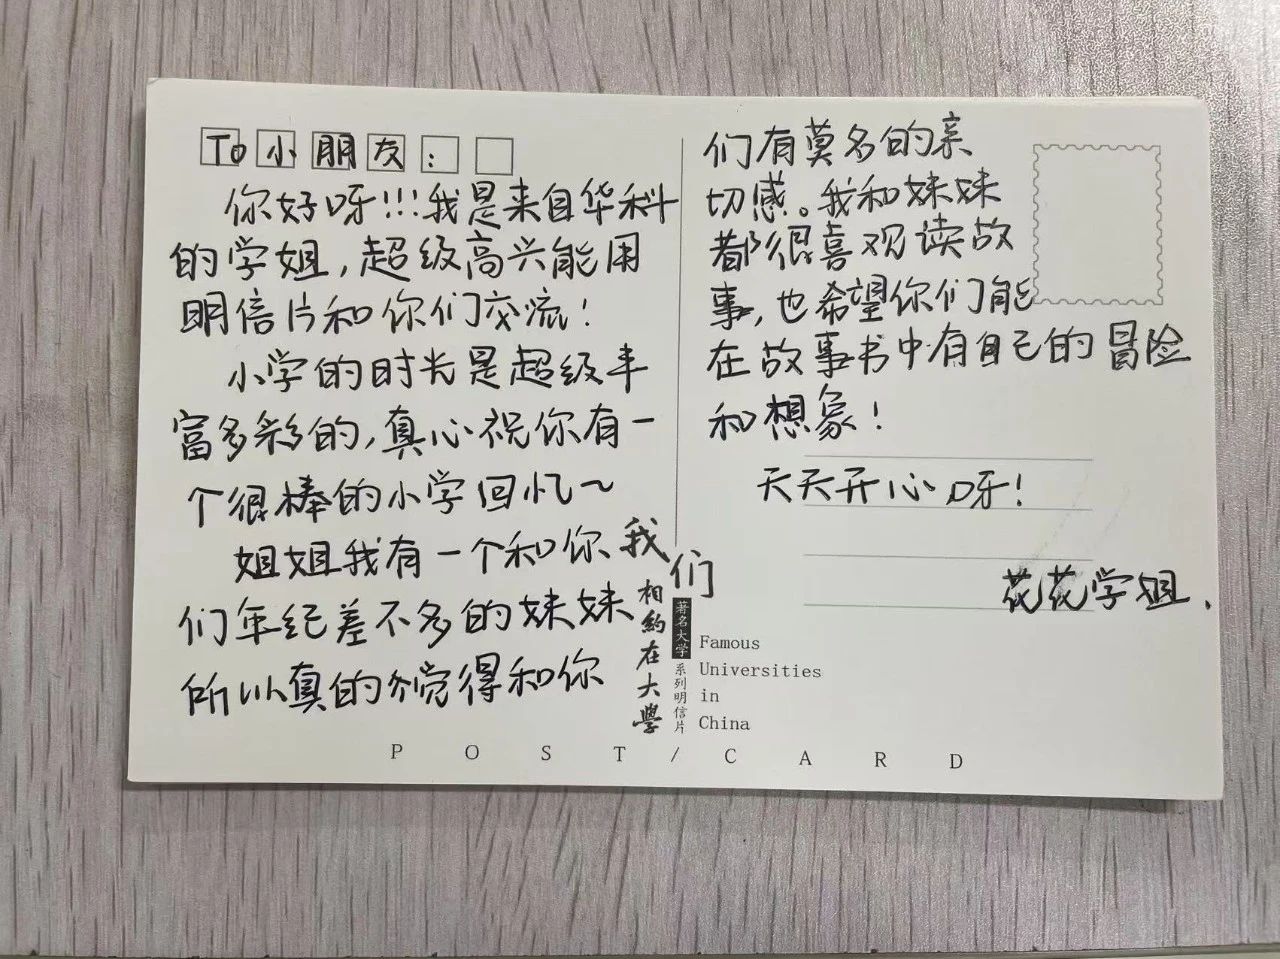 To小朋友：
你好呀!!!我是来自华科
的学姐,超级高兴能用
明信片和你们交流!
小学的时光是超级丰
富多彩的,真心祝你有一
个很棒的小学回忆~
姐姐我有一个和你
们年纪差不多的妹妹
所以真的觉得和你
们有莫名的亲
切感。我和妹妹
都很喜欢读故
事,也希望你们能
在故事书中有自己的冒险
和想象!
天天开心呀!
花花学姐.
我们
相約在大學
著名大学系列明信片
Famous
Universities
in
China
POST/CARD